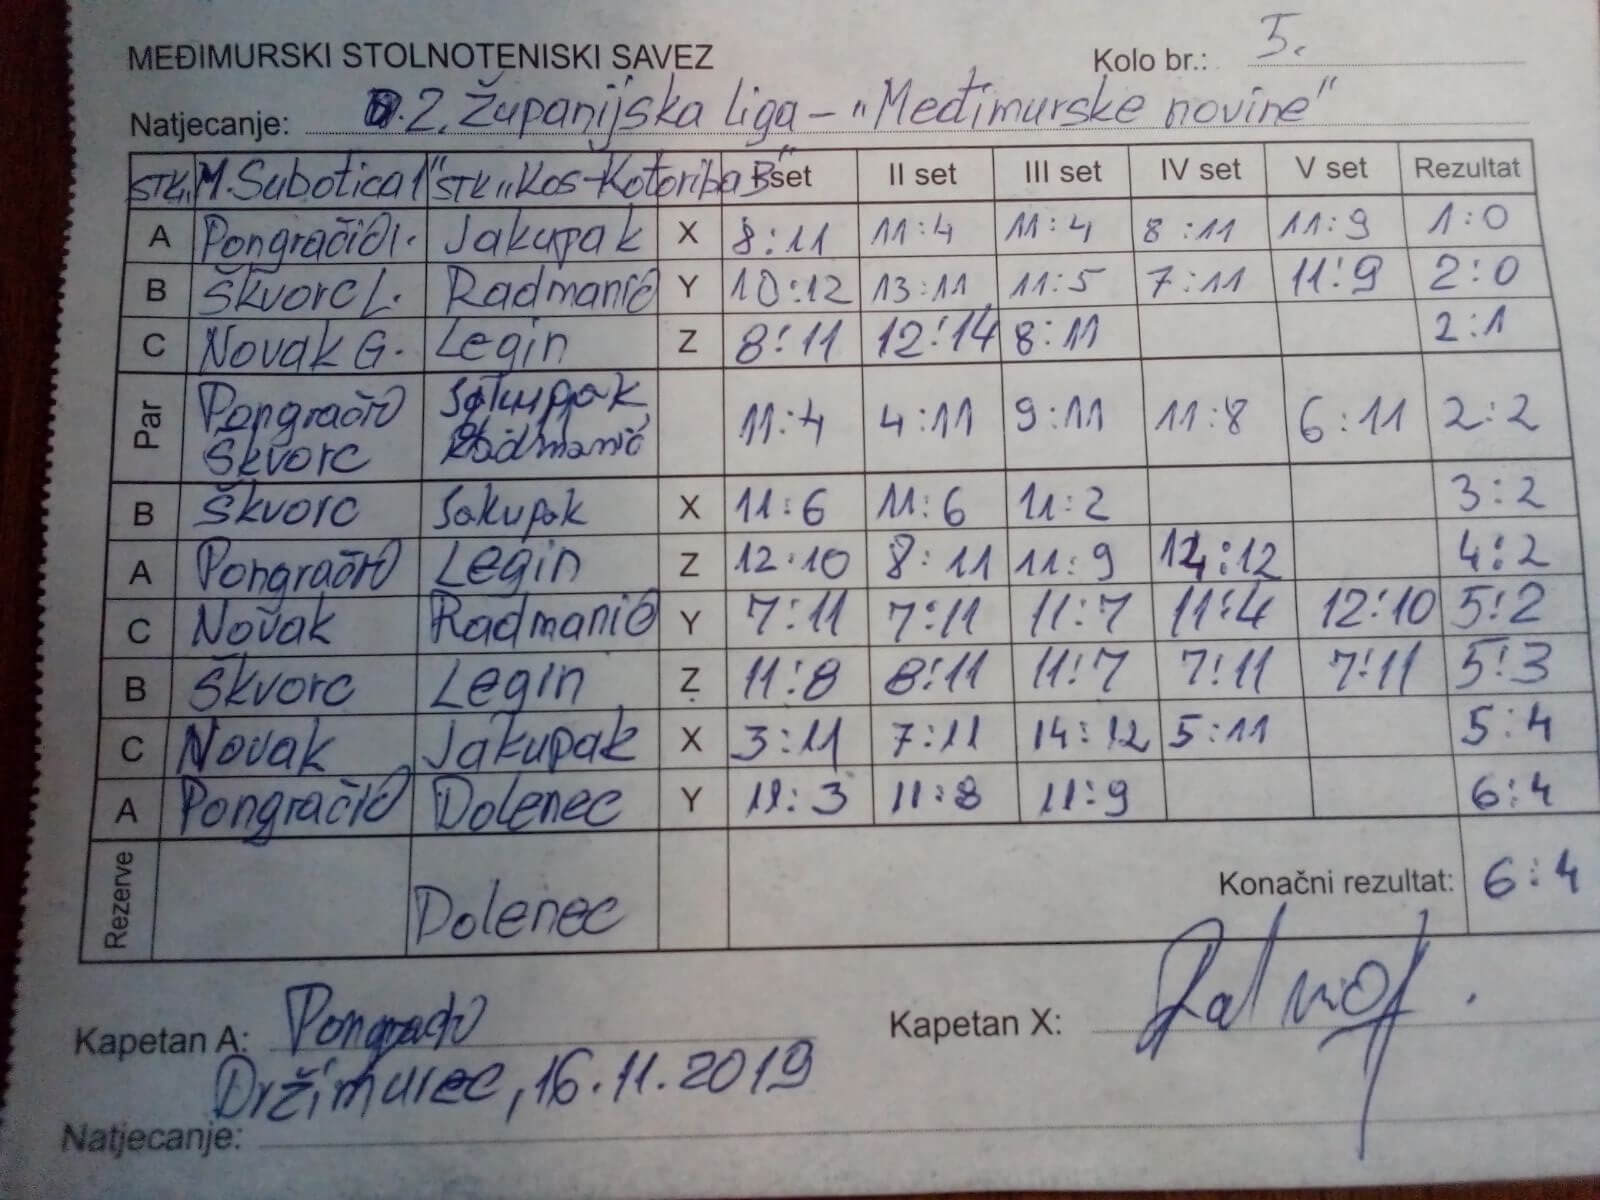 MEĐIMURSKI STOLNOTENISKI SAVEZ Kolo br.: 5.
Natjecanje: 2. Županijska liga - "Međimurske novine"
STK „M. Subotica 1" STK „Kos-Kotoriba B" I set II set III set IV set V set Rezultat
A Pongračić I. Jakupak X 8:11 11:4 11:4 8:11 11:9 1:0
B Škvorc L. Radmanić Y 10:12 13:11 11:5 7:11 11:9 2:0
C Novak G. Legin Z 8:11 12:14 8:11 2:1
Par Pongračić Jakupak, 11:4 4:11 9:11 11:8 6:11 2:2
Škvorc Radmanić
B Škvorc Jakupak X 11:6 11:6 11:2 3:2
A Pongračić Legin Z 12:10 8:11 11:9 14:12 4:2
C Novak Radmanić Y 7:11 7:11 11:7 11:4 12:10 5:2
B Škvorc Legin Z 11:8 8:11 11:7 7:11 7:11 5:3
C Novak Jakupak X 3:11 7:11 14:12 5:11 5:4
A Pongračić Dolenec Y 11:3 11:8 11:9 6:4
Rezerve Dolenec Konačni rezultat: 6:4
Kapetan A: Pongračić Kapetan X:
Držimurec, 16.11.2019
Natjecanje: